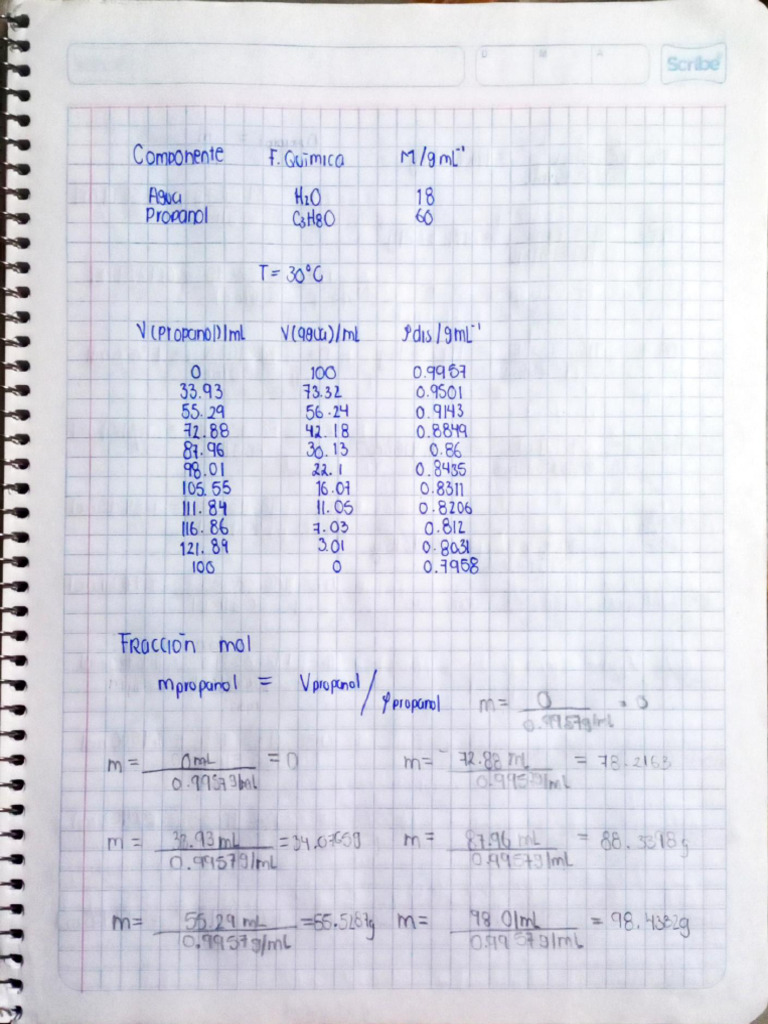 D M A
Scribe
Componente F. Química M/gmL⁻¹
Agua H₂O 18
Propanol C₃H₈O 60
T = 30°C
V(Propanol)/ml V(agua)/mL ρdis/gmL⁻¹
0 100 0.9957
33.93 73.32 0.9501
55.29 56.24 0.9143
72.88 42.18 0.8849
87.96 30.13 0.86
98.01 22.1 0.8435
105.55 16.07 0.8311
111.84 11.05 0.8206
116.86 7.03 0.812
121.89 3.01 0.8031
100 0 0.7958
Fracción mol
mpropanol = Vpropanol / ρpropanol m = 0 / 0.9957g/mL = 0
m = 0mL / 0.9957g/mL = 0 m = 72.88 mL / 0.9957g/mL = 78.2163
m = 33.93 mL / 0.9957g/mL = 34.0765g m = 87.96 mL / 0.9957g/mL = 88.3398g
m = 55.29 mL / 0.9957g/mL = 55.5287g m = 98.01mL / 0.9957g/mL = 98.4332g